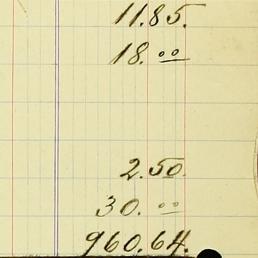 11.85.
18.00
2.50.
30.00
960.64.